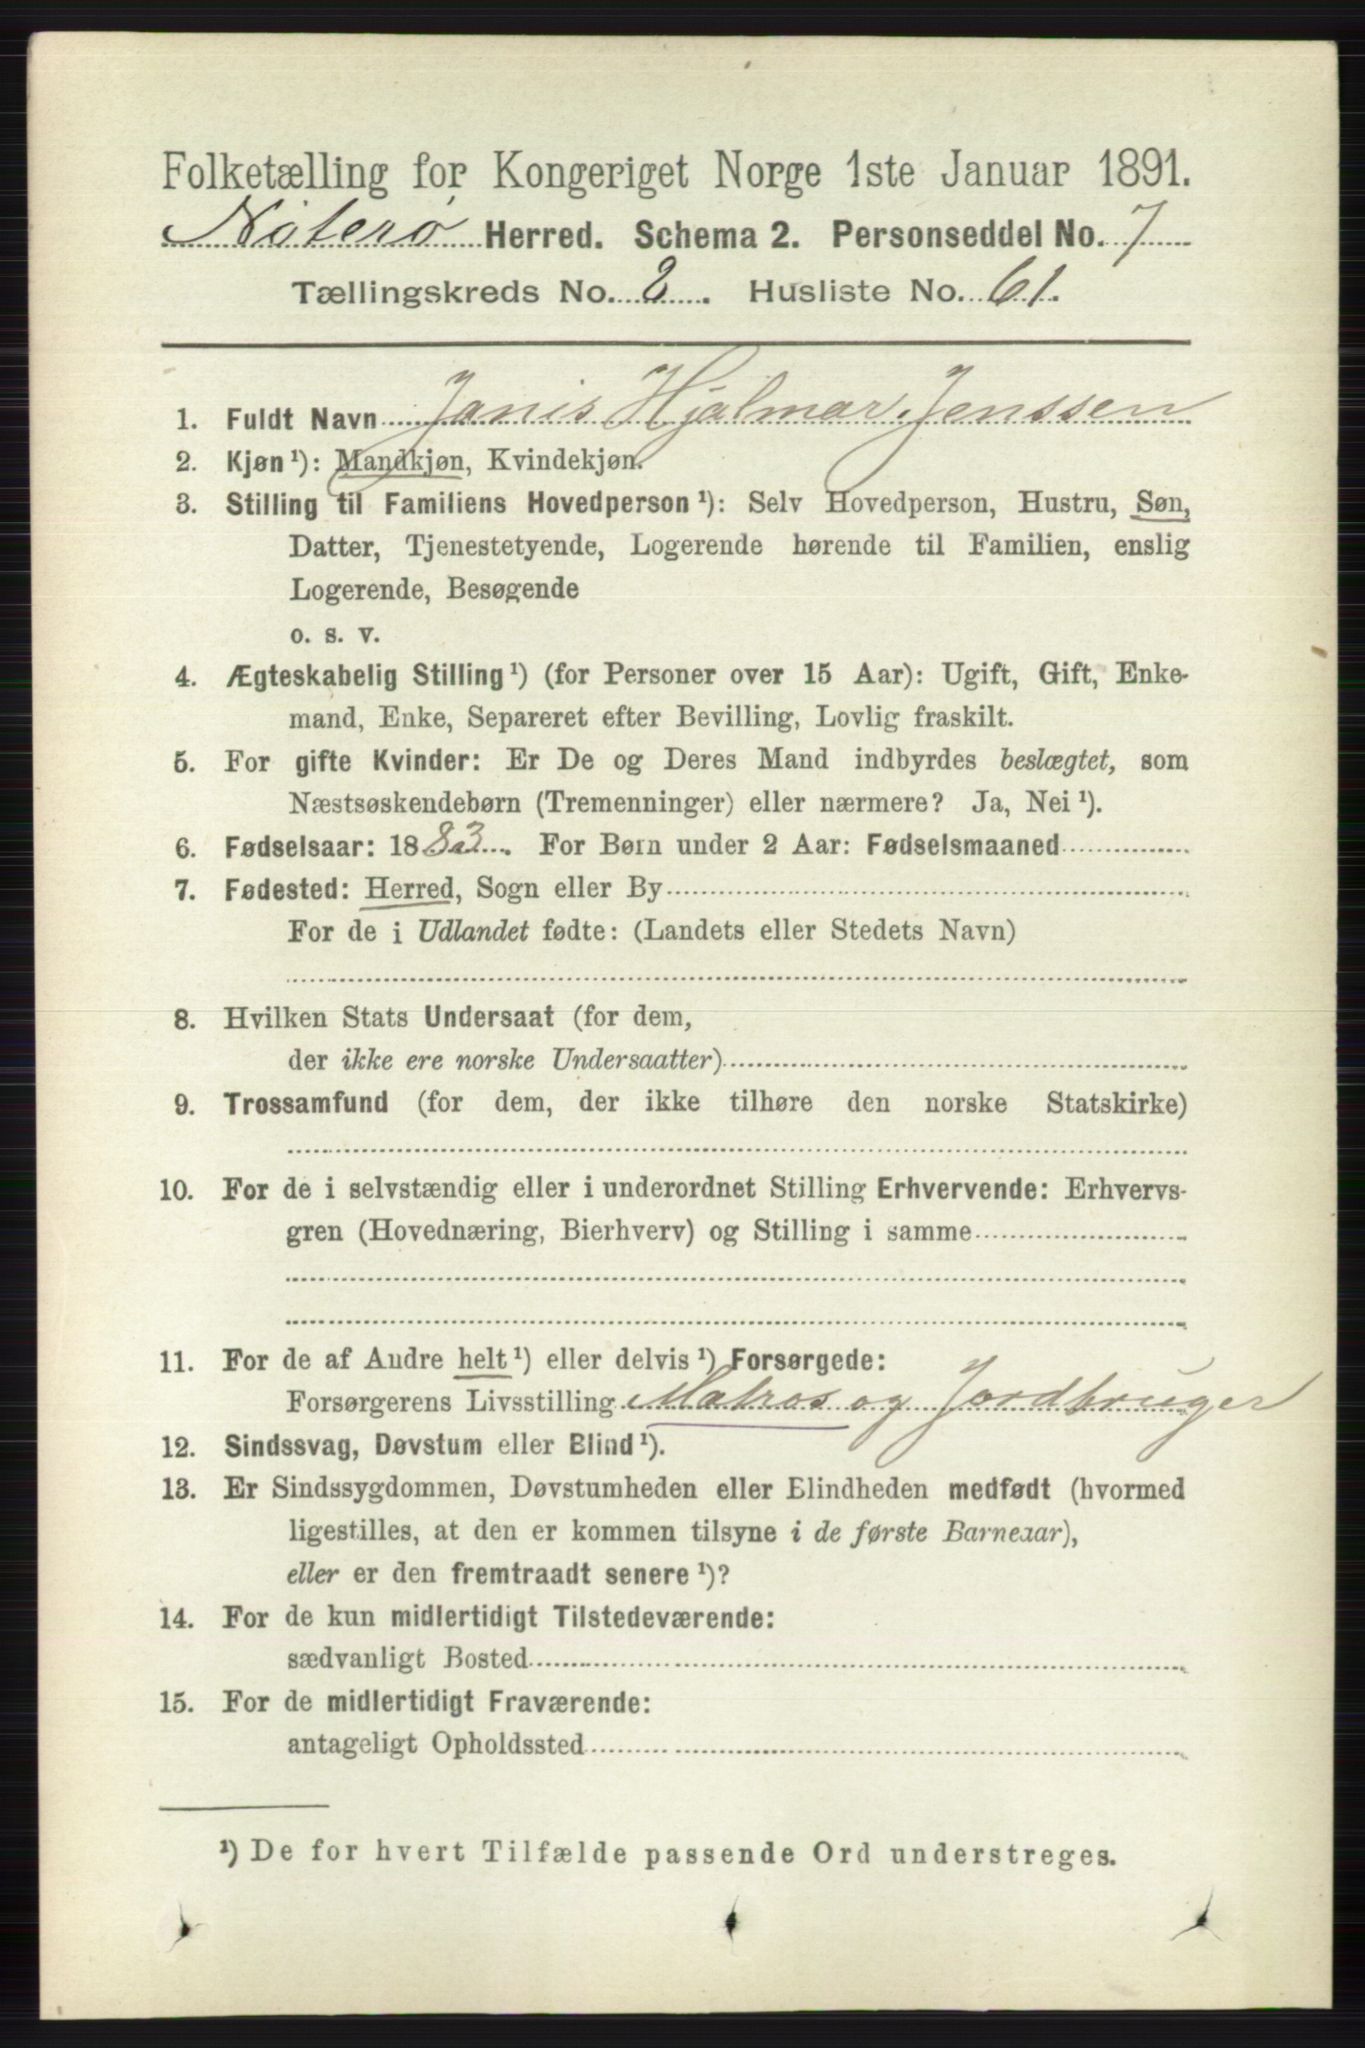 Folketælling for Kongeriget Norge 1ste Januar 1891.
Nøterø Herred. Schema 2. Personseddel No. 7
Tællingskreds No. 2. Husliste No. 61.
1. Fuldt Navn Janis Hjalmar Jenssen
2. Kjøn¹): Mandkjøn, Kvindekjøn.
3. Stilling til Familiens Hovedperson¹): Selv Hovedperson, Hustru, Søn,
Datter, Tjenestetyende, Logerende hørende til Familien, enslig
Logerende, Besøgende
o. s. v.
4. Ægteskabelig Stilling¹) (for Personer over 15 Aar): Ugift, Gift, Enke-
mand, Enke, Separeret efter Bevilling, Lovlig fraskilt.
5. For gifte Kvinder: Er De og Deres Mand indbyrdes beslægtet, som
Næstsøskendebørn (Tremenninger) eller nærmere? Ja, Nei¹).
6. Fødselsaar: 1883. For Børn under 2 Aar: Fødselsmaaned
7. Fødested: Herred, Sogn eller By
For de i Udlandet fødte: (Landets eller Stedets Navn)
8. Hvilken Stats Undersaat (for dem,
der ikke ere norske Undersaatter)
9. Trossamfund (for dem, der ikke tilhøre den norske Statskirke)
10. For de i selvstændig eller i underordnet Stilling Erhvervende: Erhvervs-
gren (Hovednæring, Bierhverv) og Stilling i samme
11. For de af Andre helt¹) eller delvis¹) Forsørgede:
Forsørgerens Livsstilling Matros og Jordbruger
12. Sindssvag, Døvstum eller Blind¹).
13. Er Sindssygdommen, Døvstumheden eller Blindheden medfødt (hvormed
ligestilles, at den er kommen tilsyne i de første Barneaar),
eller er den fremtraadt senere¹)?
14. For de kun midlertidigt Tilstedeværende:
sædvanligt Bosted
15. For de midlertidigt Fraværende:
antageligt Opholdssted
¹) De for hvert Tilfælde passende Ord understreges.